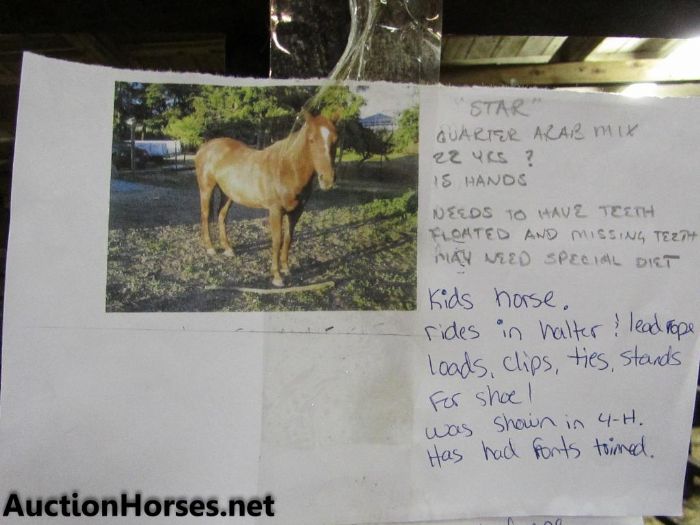 "STAR"
QUARTER ARAB MIX
22 YRS ?
15 HANDS
NEEDS TO HAVE TEETH
FLOATED AND MISSING TEETH
MAY NEED SPECIAL DIET
Kids horse.
rides in halter & lead rope
loads, clips, ties, stands
For shoe!
was shown in 4-H.
Has had fronts trimmed.
AuctionHorses.net